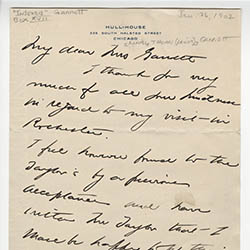 "Interest" Garrett
Box XVII
Jan 26, 1902
HULL-HOUSE
335 SOUTH HALSTED STREET
CHICAGO
My dear Mrs Garrett
I thank you very
much of all your kindness
in regard to my visit in
Rochester.
I feel however bound to the
Taylor's by a previous
acceptance and have
written Mr Taylor that I
shall be happy to be their